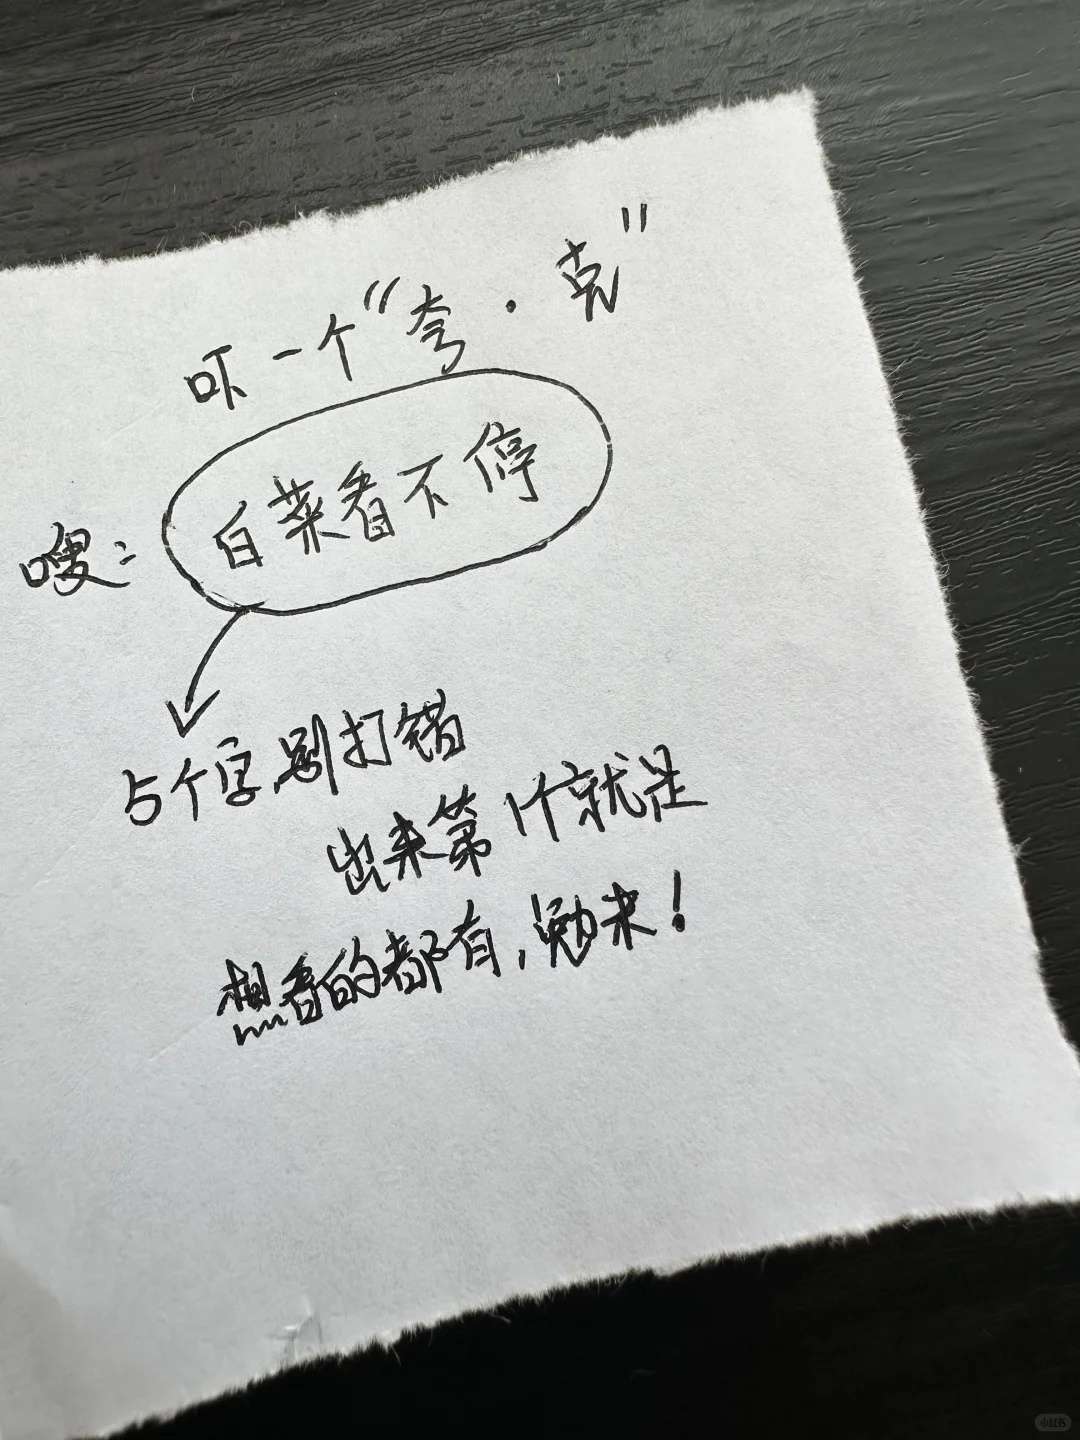 吓一个“夸·克”
嗖：白菜看不停
5个字,别打错
出来第1个就是
想看的都有,勉来!
小红书